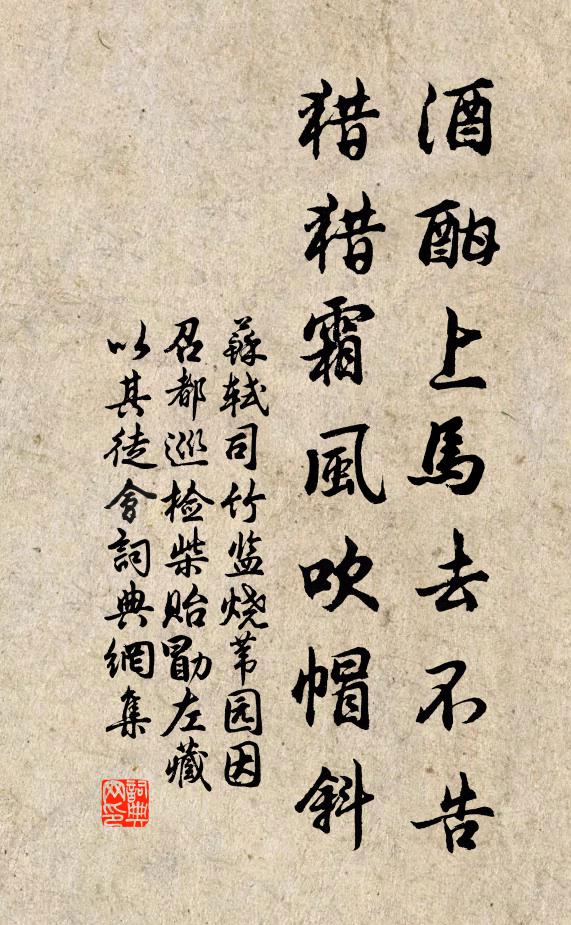 酒酣上馬去不告
猎猎霜風吹帽斜
蘇轼司竹监烧苇园因
召都巡检柴贻勖左藏
以其徒會詞典網集
詞典网印